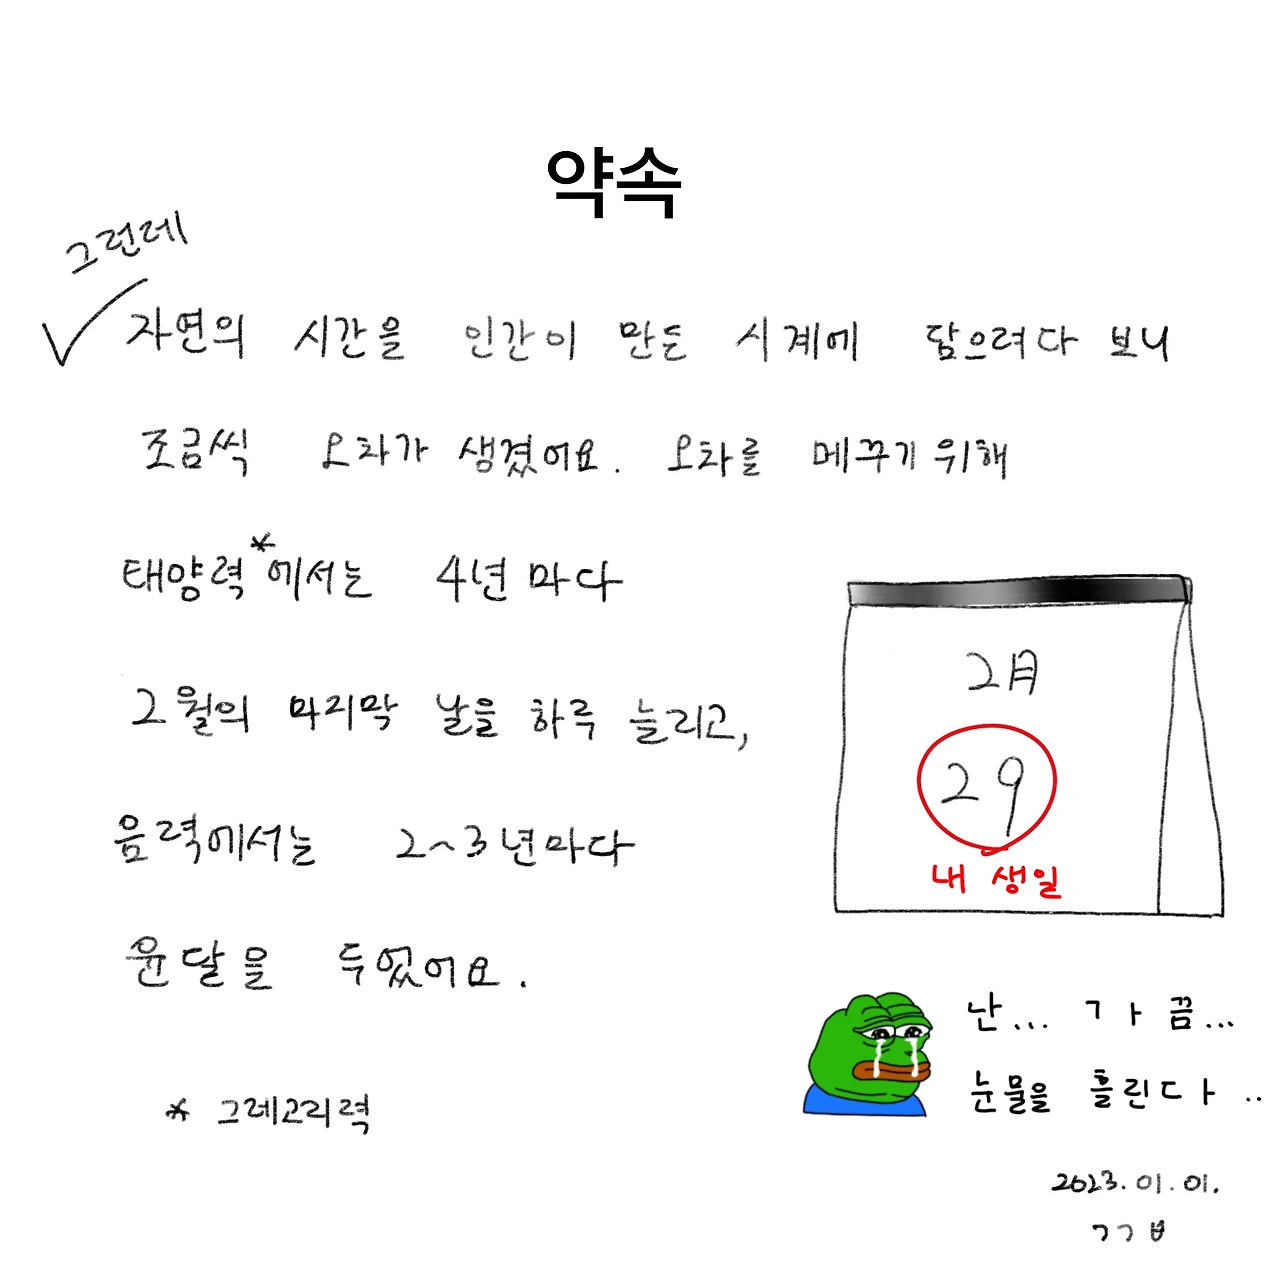 약속
그런데
자연의 시간을 인간이 만든 시계에 담으려다 보니
조금씩 오차가 생겼어요. 오차를 메꾸기 위해
태양력*에서는 4년 마다
2월의 마지막 날을 하루 늘리고,
음력에서는 2~3년마다
윤달을 두었어요.
* 그레고리력
2月
29
내 생일
난... ㄱㅏ끔...
눈물을 흘린ㄷㅏ..
2023.01.01.
ㄱㄱㅂ